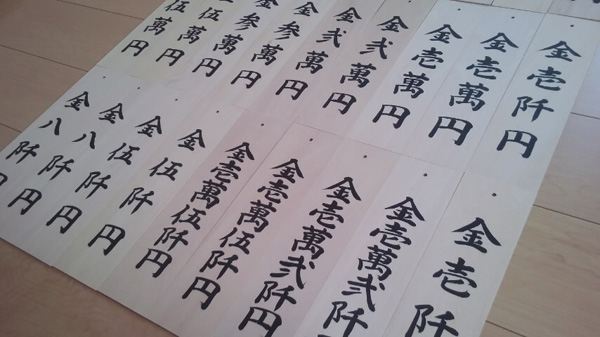 金壱阡円
金壱萬円
金壱萬円
金弐萬円
金弐萬円
金参萬円
金参萬円
伍萬円
伍萬円
金壱阡
金壱萬弐阡
金壱萬弐阡円
金壱萬伍阡円
金壱萬伍阡円
金伍阡円
金伍阡円
金八阡円
金八阡円
円